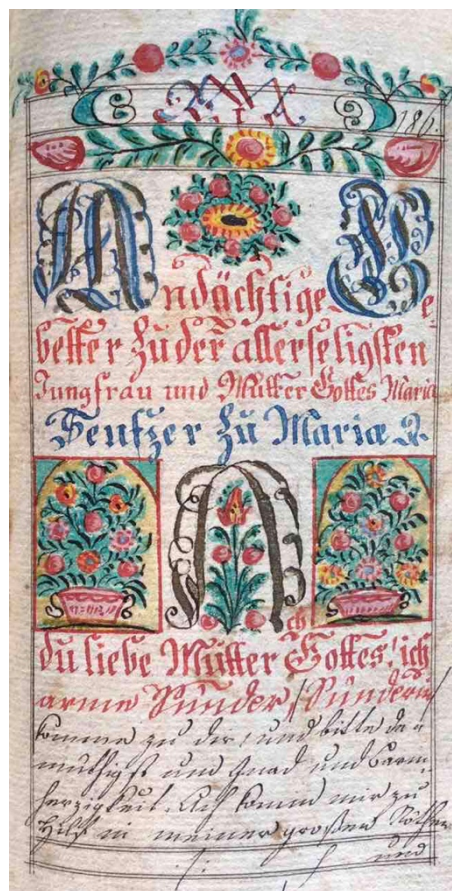 186.
Andächtige Ge-
better zu der allerseligsten
Jungfrau und Mutter Gottes Maria
Seufzer zu Maria
Ach
du liebe Mutter Gottes! ich
arme Sünder/Sünderin
komme zu dir, und bitte de-
müthigst um Gnad und Barm-
herzigkeit. Ach komm mir zu
Hilf in meiner großen Nöthen
und